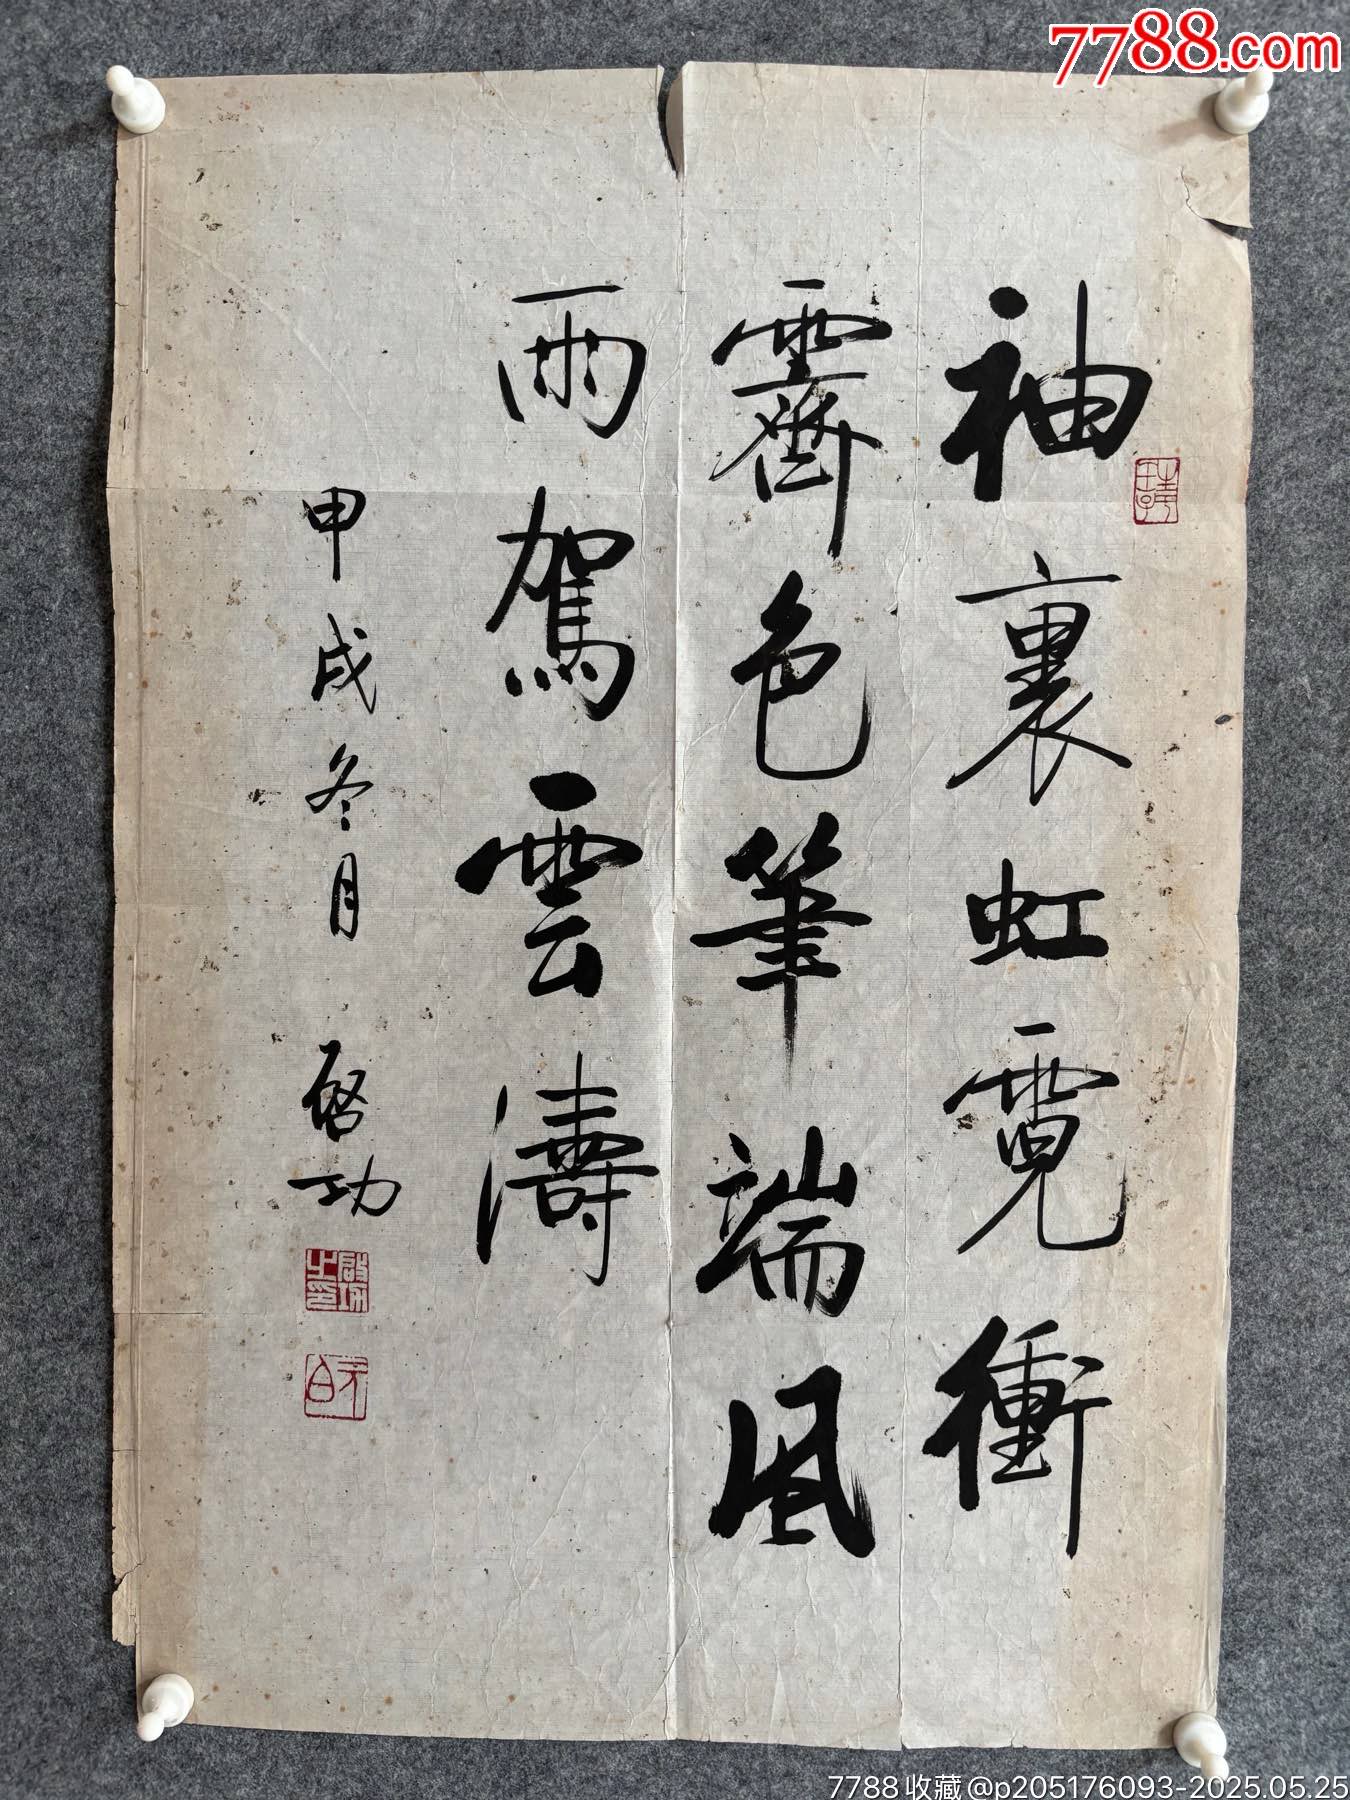 7788.com
袖裏虹霓衝
霽色筆端風
雨駕雲濤
甲戌冬月 啓功
啟功之印
7788收藏@p205176093-2025.05.25